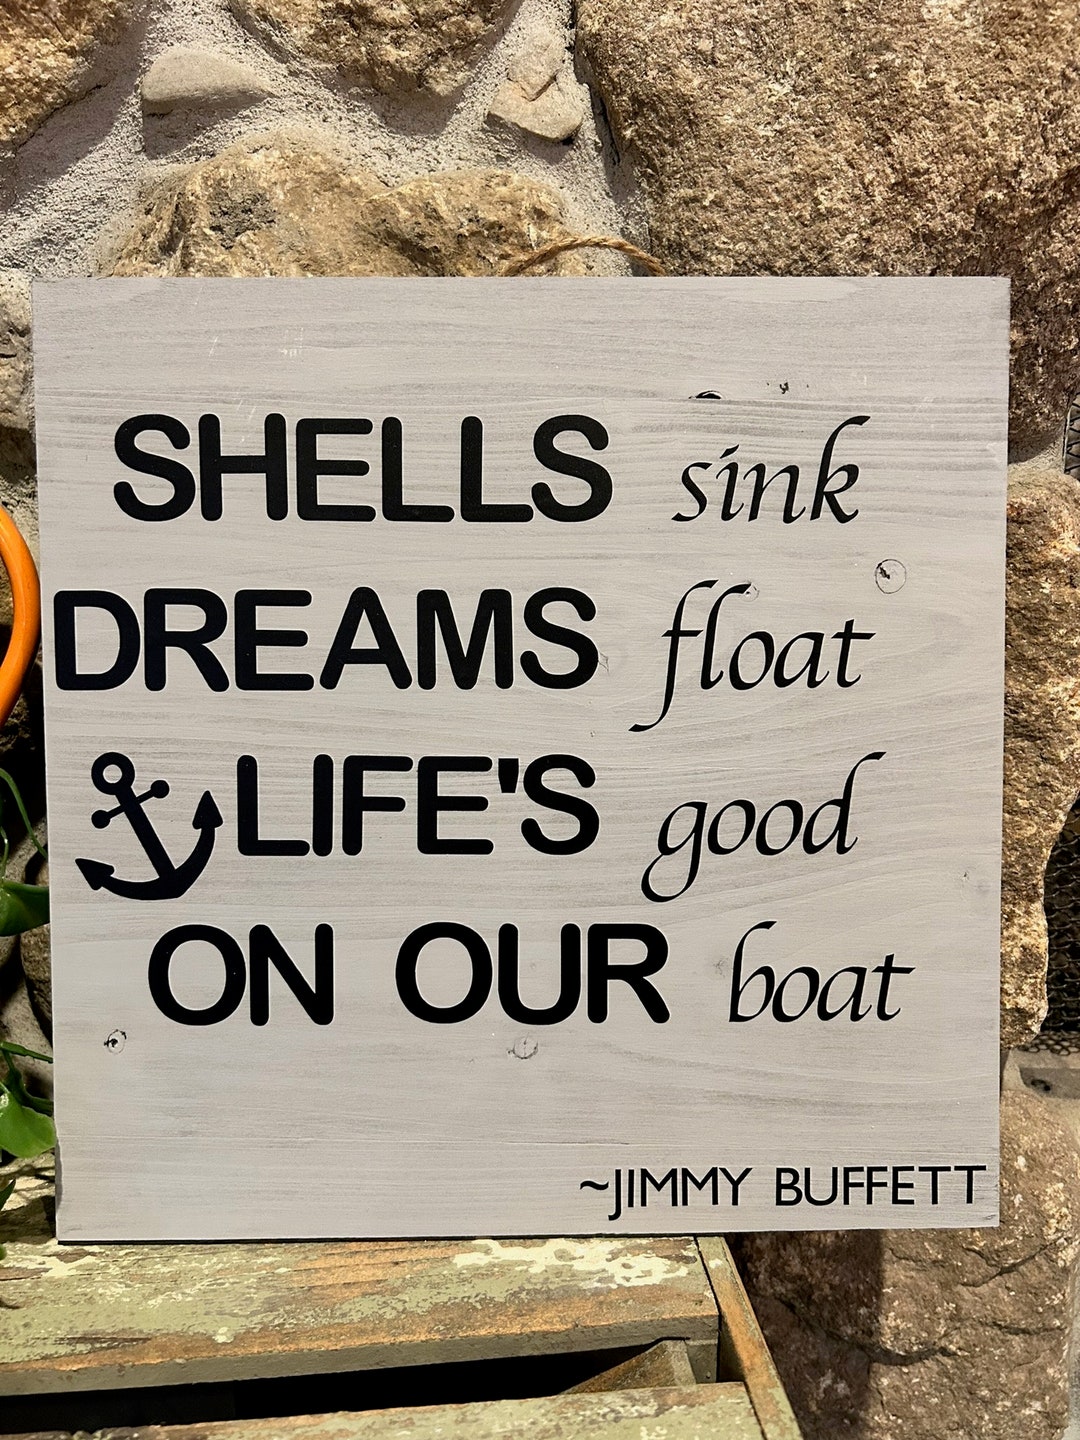 SHELLS sink
DREAMS float
LIFE'S good
ON OUR boat
~JIMMY BUFFETT